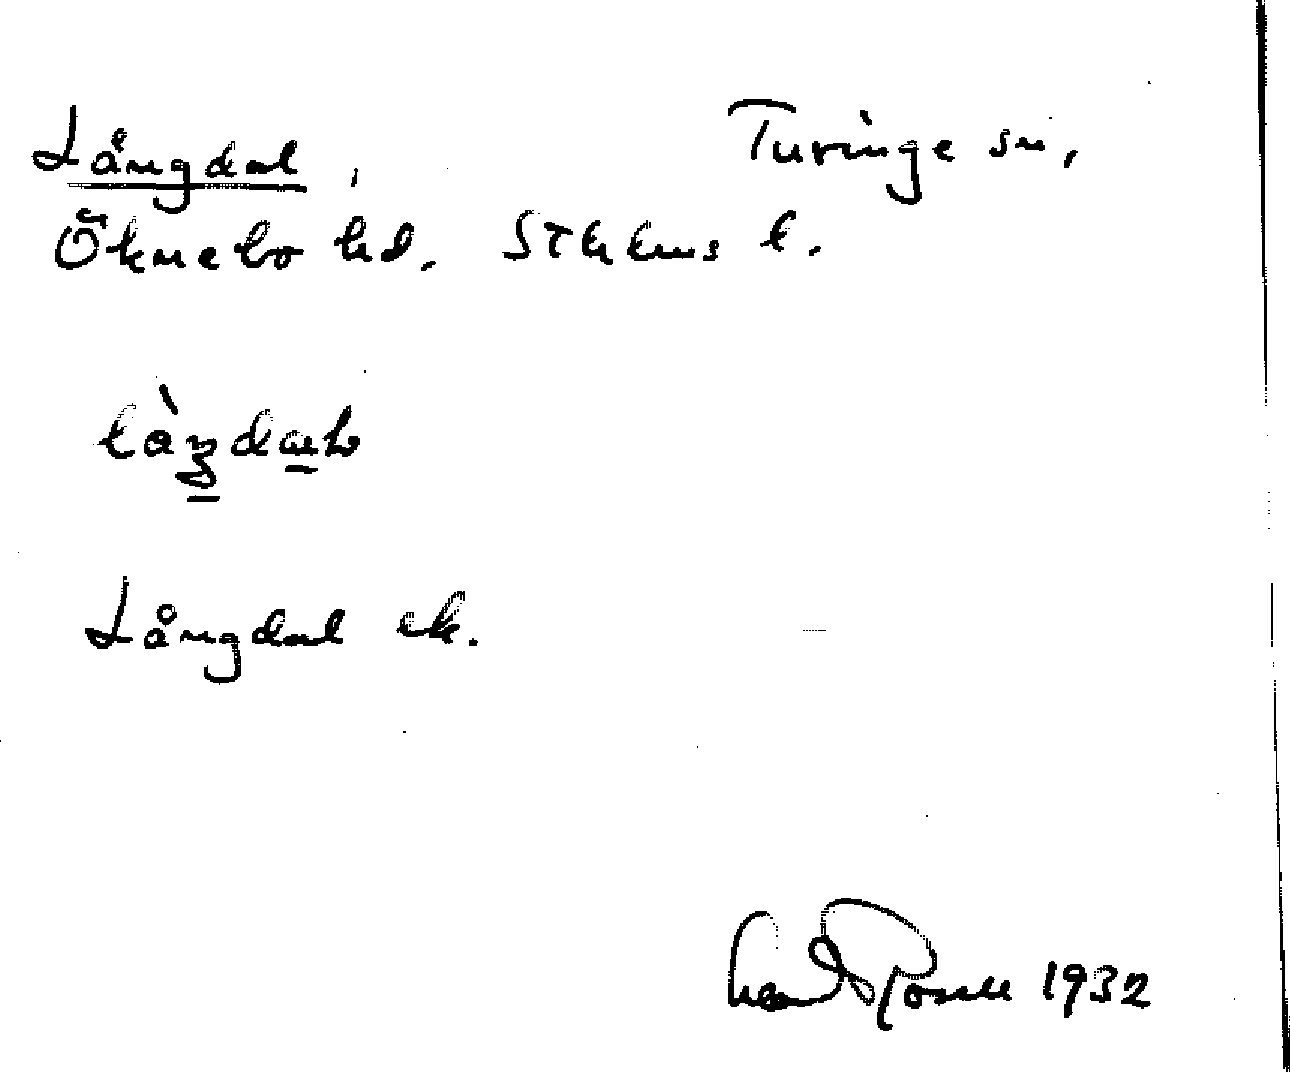 Långdal, Turinge sn,
Öknebo hd. Sthlms l.
Långdal ek.
1932